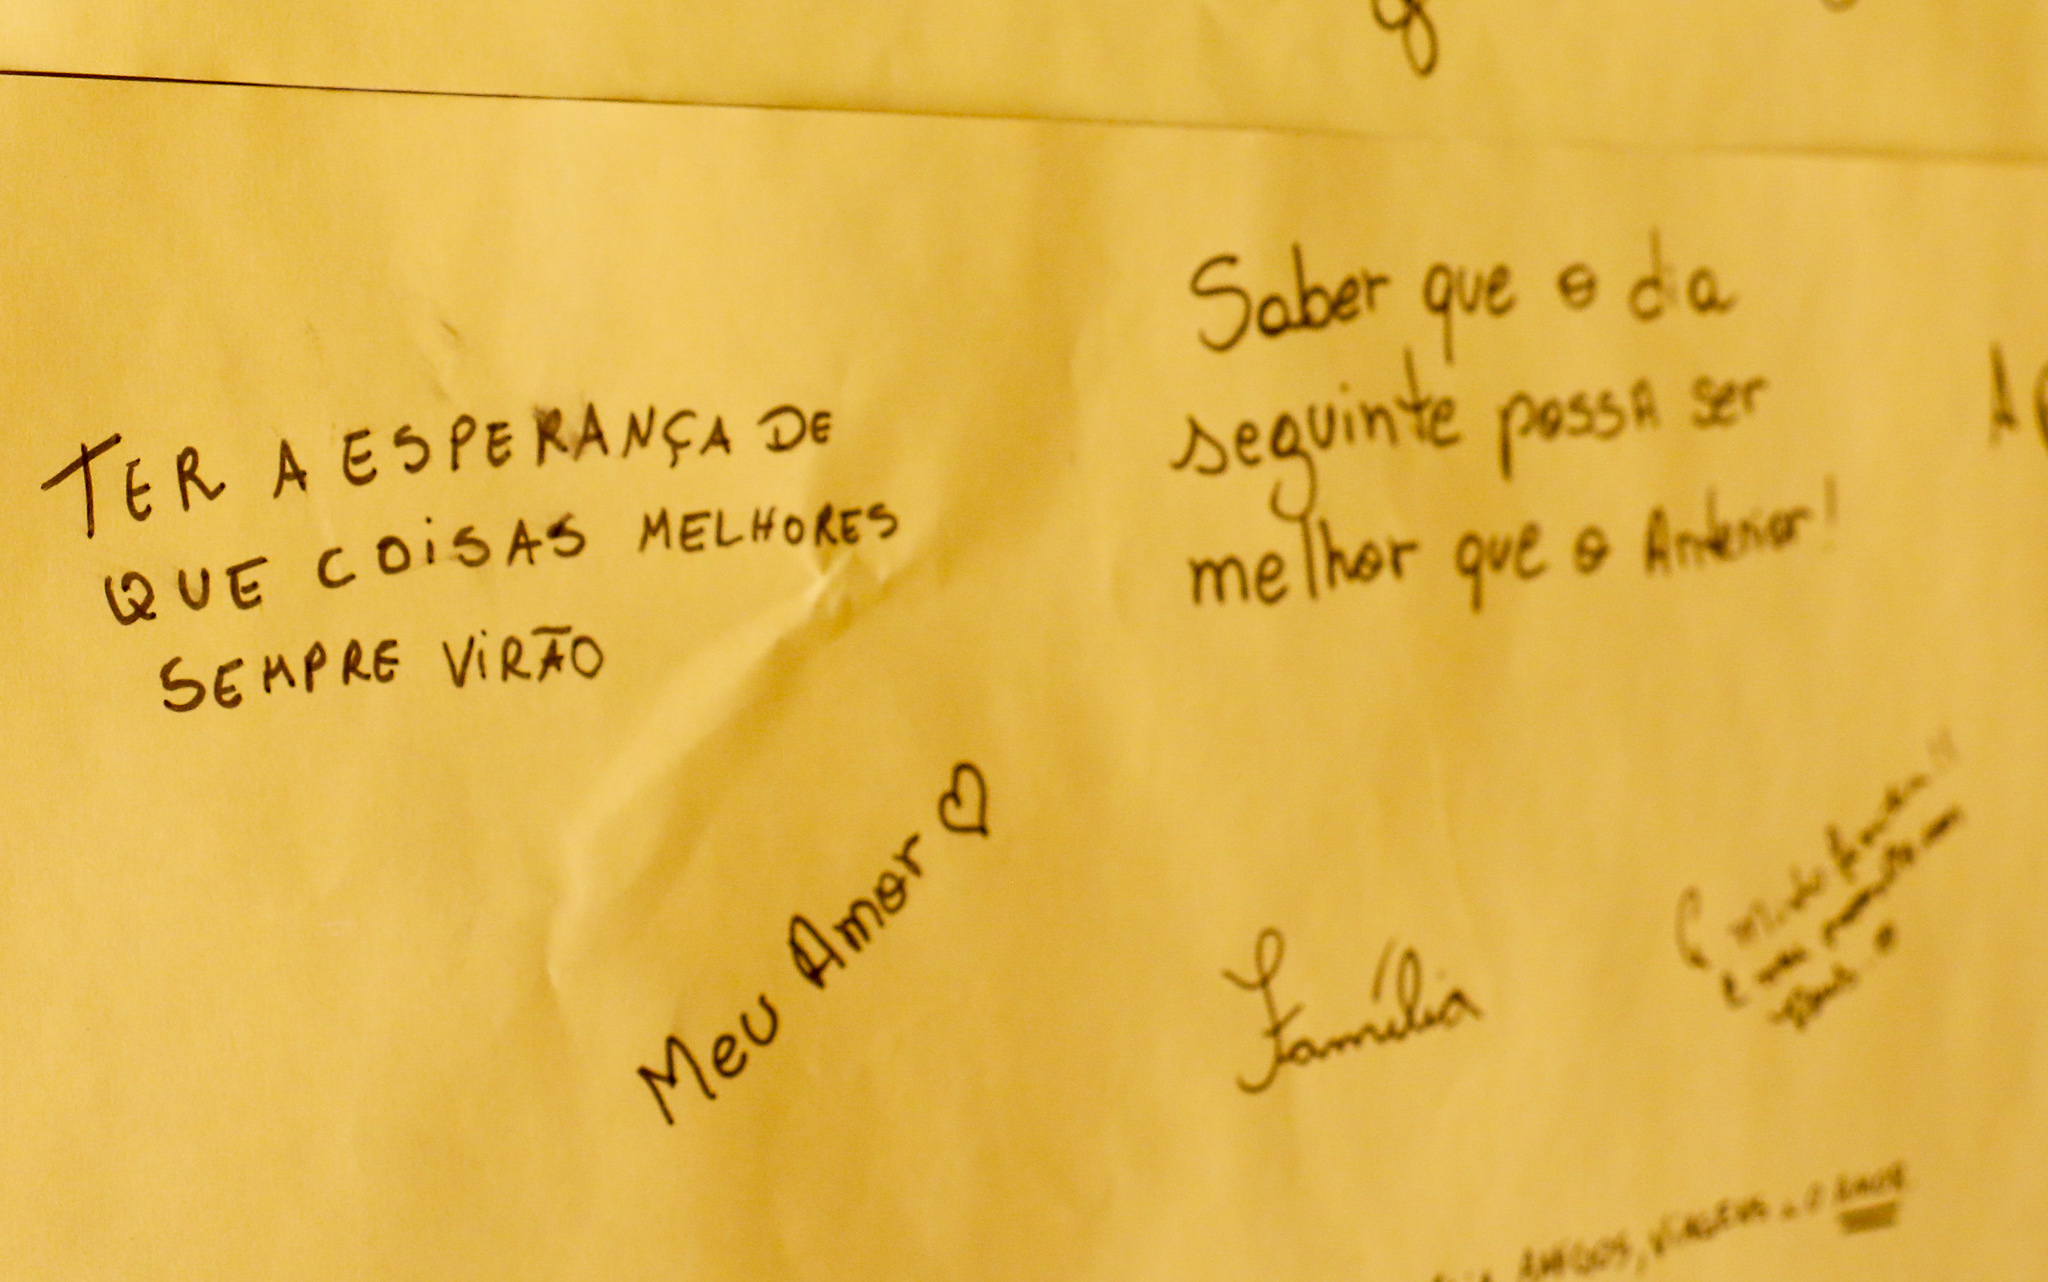 TER A ESPERANÇA DE
QUE COISAS MELHORES
SEMPRE VIRÃO
Saber que o dia
seguinte possa ser
melhor que o Anterior!
Meu Amor
Família
AMIGOS, VIAGENS... O AMOR